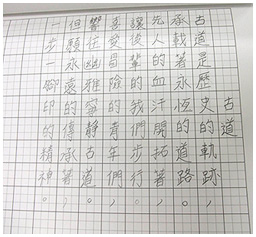 古道
古道是歷史的軌跡，
承載著永恆的道路。
先人的血汗開拓著，
讓後輩的我們步行，
愛冒險的青年們，
響在幽雅寧靜古道。
但願永遠的傳承著，
一步一腳印的精神。